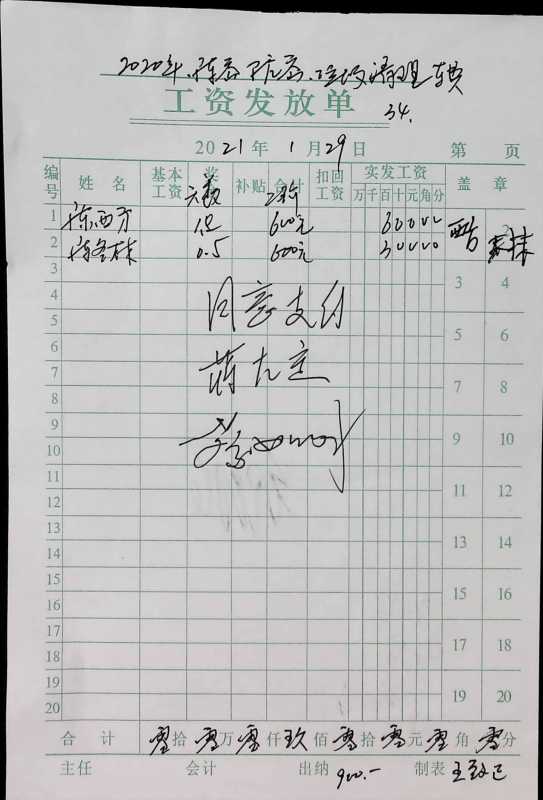 2020年 垃圾清理
工资发放单
34.
2021年1月29日 第 页
编号 姓名 基本工资 奖 天数 补贴 合计 工资 扣回工资 实发工资 万千百十元角分 盖章
1 陈西方 1.0 600元 60000
2 陈冬林 0.5 600元 30000
3 3 4
4
5 同意支付 5 6
6
7 蒋九定 7 8
8
9 9 10
10
11 11 12
12
13 13 14
14
15 15 16
16
17 17 18
18
19 19 20
20
合计 零拾零万零仟玖佰零拾零元零角零分
主任 会计 出纳 900.- 制表